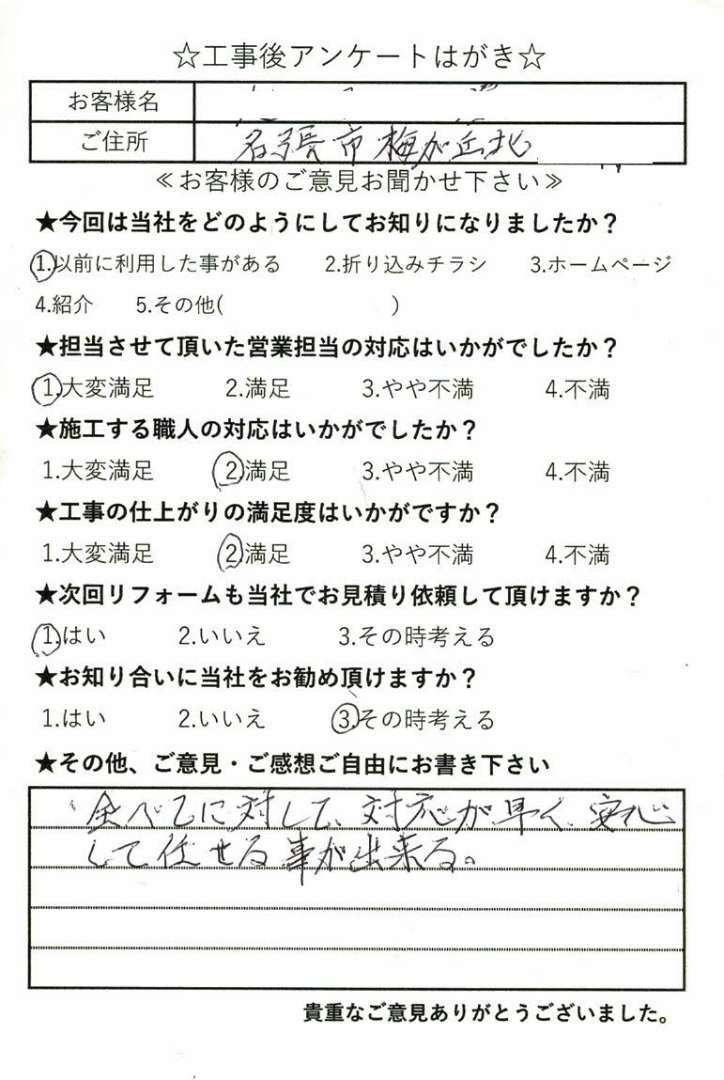 ☆工事後アンケートはがき☆
お客様名
ご住所 名張市梅が丘北
≪お客様のご意見お聞かせ下さい≫
★今回は当社をどのようにしてお知りになりましたか？
1.以前に利用した事がある 2.折り込みチラシ 3.ホームページ
4.紹介 5.その他( )
★担当させて頂いた営業担当の対応はいかがでしたか？
1.大変満足 2.満足 3.やや不満 4.不満
★施工する職人の対応はいかがでしたか？
1.大変満足 2.満足 3.やや不満 4.不満
★工事の仕上がりの満足度はいかがですか？
1.大変満足 2.満足 3.やや不満 4.不満
★次回リフォームも当社でお見積り依頼して頂けますか？
1.はい 2.いいえ 3.その時考える
★お知り合いに当社をお勧め頂けますか？
1.はい 2.いいえ 3.その時考える
★その他、ご意見・ご感想ご自由にお書き下さい
全べてに対して、対応が早く、安心
して任せる事が出来る。
貴重なご意見ありがとうございました。